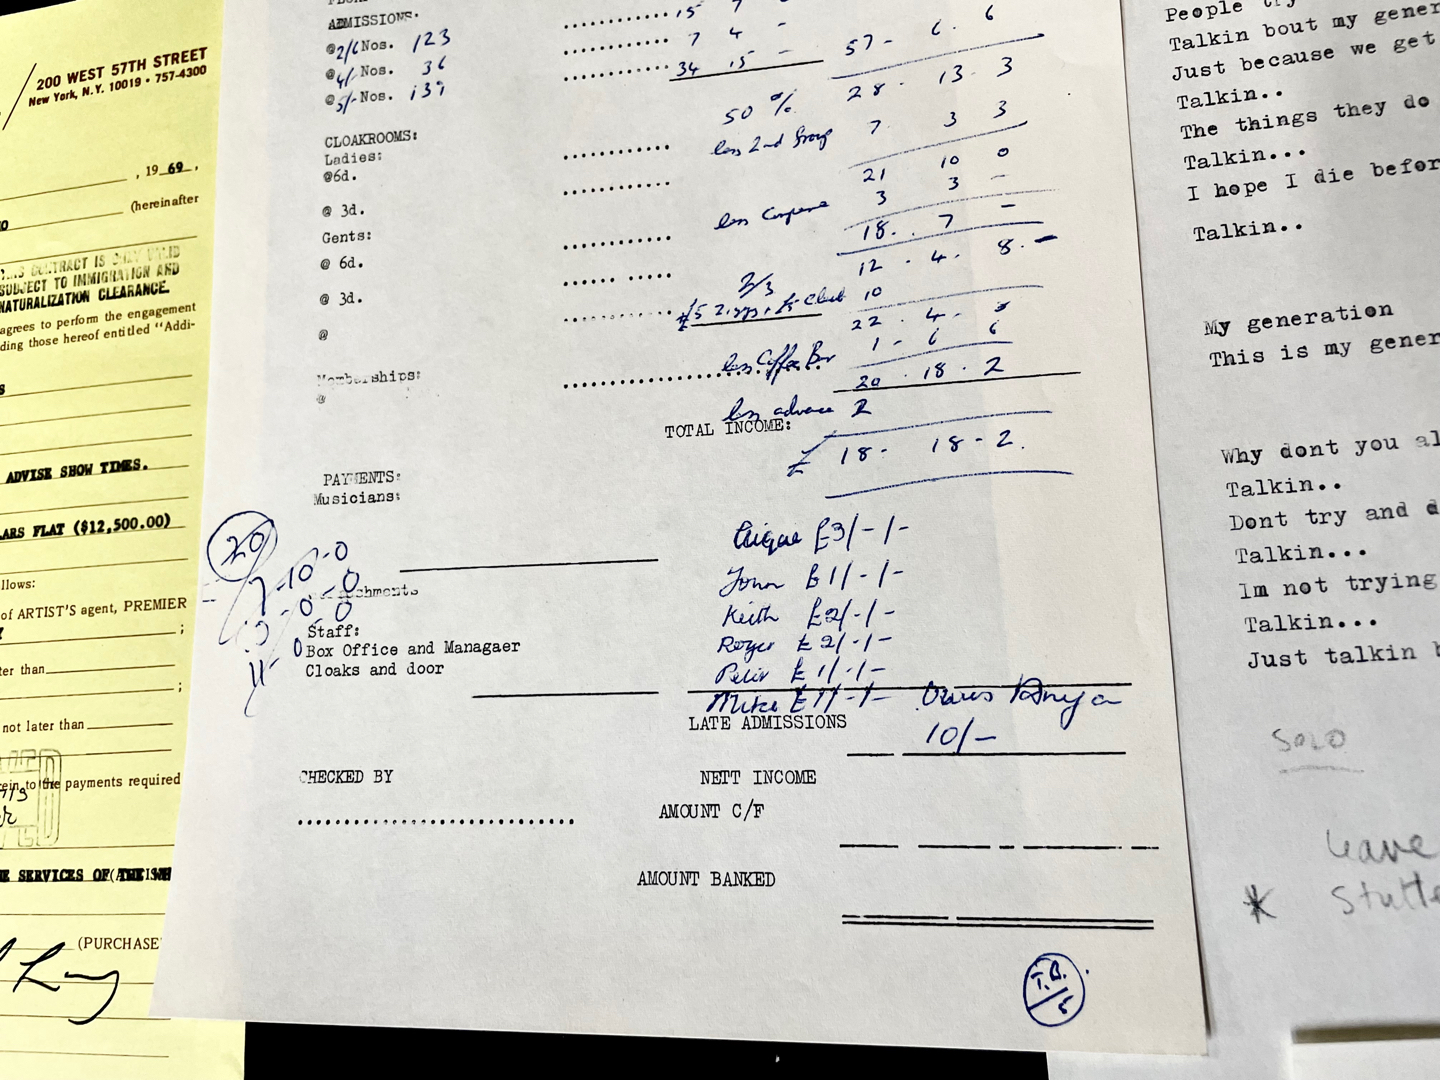 200 WEST 57TH STREET
New York, N.Y. 10019 • 757-4300
, 19 69 ,
(hereinafter
THIS CONTRACT IS ONLY VALID
SUBJECT TO IMMIGRATION AND
NATURALIZATION CLEARANCE.
agrees to perform the engagement
ding those hereof entitled "Addi-
ADVISE SHOW TIMES.
ARS FLAT ($12,500.00)
llows:
of ARTIST'S agent, PREMIER
;
ter than
;
not later than
rein to the payments required
E SERVICES OF
(PURCHASE
ADMISSIONS:
15 7
@2/6 Nos. 123
7 4 -
57 - 6. 6
@4/- Nos. 36
34 15 -
@5/- Nos. 139
50 % 28 . 13 . 3
CLOAKROOMS:
less 2nd Group 7 3 3
Ladies:
@6d.
21 10 0
@ 3d.
less 3 3 -
Gents:
18 . 7 -
@ 6d.
12 . 4 . 8 . -
2/3
@ 3d.
£5 10
@
22 . 4 -
less Coffee Bar 1 - 6 6
Memberships:
@
20 . 18 . 2
less advance 2
TOTAL INCOME:
£ 18 - 18 - 2.
PAYMENTS:
Musicians:
20
£3/-/-
-10-0
John £1/-/-
Keith £2/-/-
Staff:
Roger £2/-/-
Box Office and Managaer
Cloaks and door
Peter £1/-/-
Mike £1/-/-
LATE ADMISSIONS
10/-
CHECKED BY
NETT INCOME
AMOUNT C/F
AMOUNT BANKED
T.B.
People try
Talkin bout my gener
Just because we get
Talkin..
The things they do
Talkin...
I hope I die befor
Talkin..
My generation
This is my gener
Why dont you al
Talkin..
Dont try and d
Talkin...
Im not trying
Talkin...
Just talkin b
SOLO
leave
* Stutte